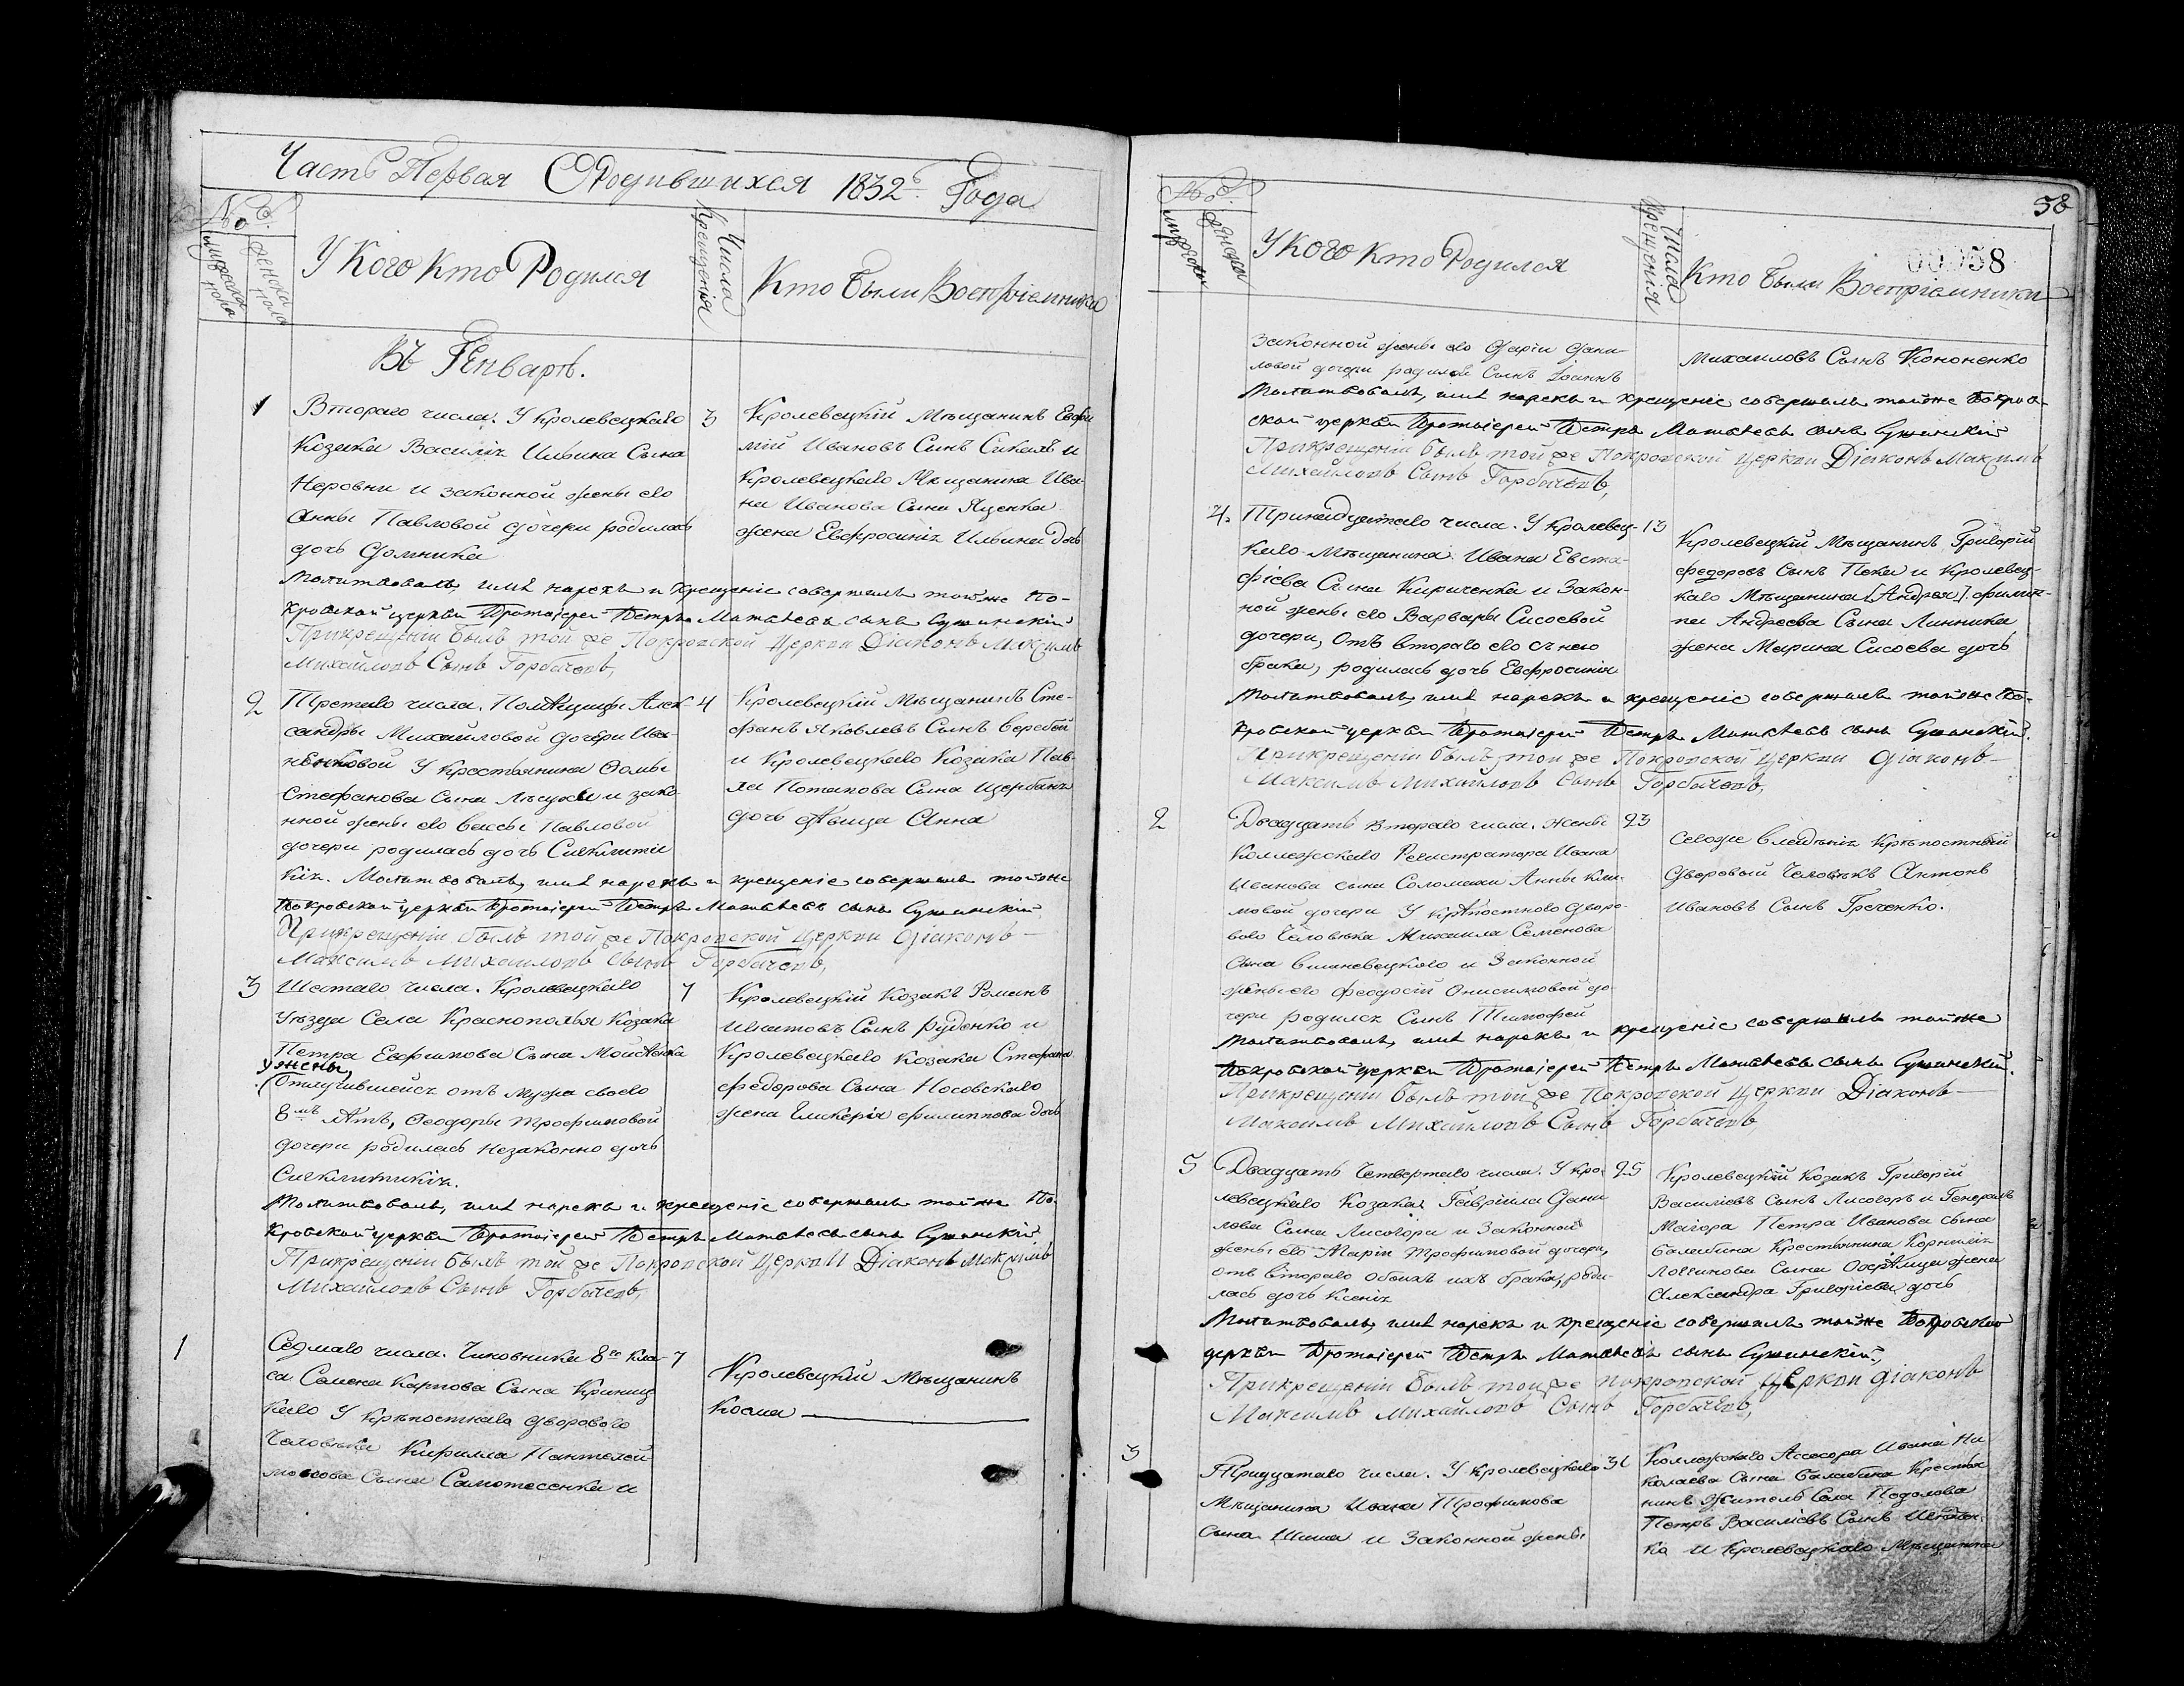 Часть Первая О Родившихся 1832го Года
№
мужеска пола
женска пола
У Кого Кто Родился
Числа Крещенія
Кто Были Воспріемники
Въ Генварѣ.
1
Втораго числа. У Кролевецкаго
3
Козака Василія Ильина Сына
Неровни и законной жены его
Анны Павловой дочери родилась
дочь Домникіа
Кролевецкій Мѣщанинъ Евфи
мій Ивановъ Сынъ Сикалъ и
Кролевецкаго Мѣщанина Ива-
на Иванова Сына Яценка
жена Евфросинія Ильина дочь
Молитвовалъ, имя нарекъ и крещеніе совершилъ тойже По-
кровской церкви Протоіерей Петръ Матвѣевъ сынъ Сушинскій
Прикрещеніи былъ той же Покровской Церкви Діаконъ Максимъ
Михайловъ Сынъ Горбачевъ,
2
Третяго числа. Помѣщицы Алек
4
сандры Михайловой дочери Ива-
ненковой У Крестьянина Фомы
Стефанова Сына и зако
нной жены его Вассы Павловой
дочери родилась дочь Сигклити
кія. Молитвовалъ, имя нарекъ и крещеніе совершилъ тойже
Кролевецкій Мѣщанинъ Сте-
фанъ Яковлевъ Сынъ Веребей
и Кролевецкаго Козака Пав-
ла Потапова Сына Щербака
дочь дѣвица Анна
Покровской церкви Протоіерей Петръ Матвѣевъ сынъ Сушинскій
Прикрещеніи былъ той же Покровской Церкви Діаконъ
Максимъ Михайловъ Сынъ Горбачевъ,
3
Шестаго числа. Кролевецкаго
7
Уѣзда Села Краснополья Козака
Петра Евфимова Сына Мойсѣенка
У жены,
(Отлучившейся отъ мужа своего
8мъ лѣтъ, Феодоры Трофимовой
дочери родилась незаконно дочь
Сигклитикія.
Кролевецкій Козакъ Романъ
Игнатовъ Сынъ Руденко и
Кролевецкаго Козака Стефана
Федорова Сына Носовскаго
жена Гликерія Филиппова дочь
Молитвовалъ, имя нарекъ и крещеніе совершилъ тойже По-
кровской церкви Протоіерей Петръ Матвѣевъ сынъ Сушинскій
Прикрещеніи былъ той же Покровской Церкви Діаконъ Максимъ
Михайловъ Сынъ Горбачевъ,
1
Седмаго числа. Чиновника 8го Кла-
7
са Самена Карпова Сына Криниц
каго У Крѣпостнаго дворового
Человѣка Кирилла Пантелей
монова Сына Самотесенка и
Кролевецкій Мѣщанинъ
Косма
58
00058
№
мужеска
женска
У Кого Кто Родился
Числа Крещенія
Кто Были Воспріемники
законной жены его Даріи Дани-
ловой дочери родился Сынъ Іоаннъ
Михаиловъ Сынъ Кононенко
Молитвовалъ, имя нарекъ и крещеніе совершилъ тойже Покров-
ской церкви Протоіерей Петръ Матвѣевъ сынъ Сушинскій
Прикрещеніи былъ той же Покровской Церкви Діаконъ Максимъ
Михайловъ Сынъ Горбачевъ,
4.
Тринайдцятаго числа. У Кролевец-
13
каго Мѣщанина Ивана Евста-
фіева Сына Кириченка и Закон-
ной жены его Варвары Сисоевой
дочери, Отъ втораго его съ нею
брака, родилась дочь Евфросинія
Кролевецкій Мѣщанинъ Григорій
Федоровъ Сынъ Пека и Кролевец-
каго Мѣщанина [Андрея] Филип-
па Андреева Сына Линника
жена Марина Сисоева дочь
Молитвовалъ, имя нарекъ и крещеніе совершилъ тойже По-
кровской церкви Протоіерей Петръ Матвѣевъ сынъ Сушинскій.
Прикрещеніи былъ той же Покровской Церкви Діаконъ
Максимъ Михайловъ Сынъ Горбачевъ,
2
Двадцать втораго числа. Жены
23
Коллежскаго Регистратора Ивана
Иванова сына Соломахи Анны Кли-
мовой дочери У Крѣпостного Дворо-
вого Человѣка Михаила Семенова
Сына Вишневецкого и Законной
жены его Феодосіи Онисимовой до-
чери родился Сынъ Тимофей
Тогоже владѣнія Крѣпостный
дворовый Человѣкъ Антонъ
Ивановъ Сынъ Греченко.
Молитвовалъ, имя нарекъ и крещеніе совершилъ тойже
Покровской церкви Протоіерей Петръ Матвѣевъ сынъ Сушинскій.
Прикрещеніи былъ той же Покровской Церкви Діаконъ
Максимъ Михайловъ Сынъ Горбачевъ,
5
Двадцать Четвертаго числа. У Кро-
25
левецкаго Козака Гавріила Дани
лова Сына Лисогора и Законной
жены его Маріи Трофимовой дочери,
отъ втораго Обоихъ ихъ брака, роди-
лась дочь Ксенія
Кролевецкій Козакъ Григорій
Василіевъ Сынъ Лисогоръ и Генералъ
Маіора Петра Иванова сына
Балабина Крестьянина Корнилія
Логинова Сына жена
Александра Григоріева дочь
Молитвовалъ, имя нарекъ и крещеніе совершилъ тойже Покровской
церкви Протоіерей Петръ Матвѣевъ сынъ Сушинскій,
Прикрещеніи былъ той же покровской Церкви Діаконъ
Максимъ Михайловъ Сынъ Горбачевъ,
3
Тридцатаго числа. У Кролевецкаго
31
Мѣщанина Ивана Трофимова
Сына Шиша и Законной жены
Коллежскаго Ассесора Ивана Ни
колаева Сына Балабина Крестья
нинъ Житель Села Подолова
Петръ Василіевъ Сынъ
ка и Кролевецкаго Мѣщанина